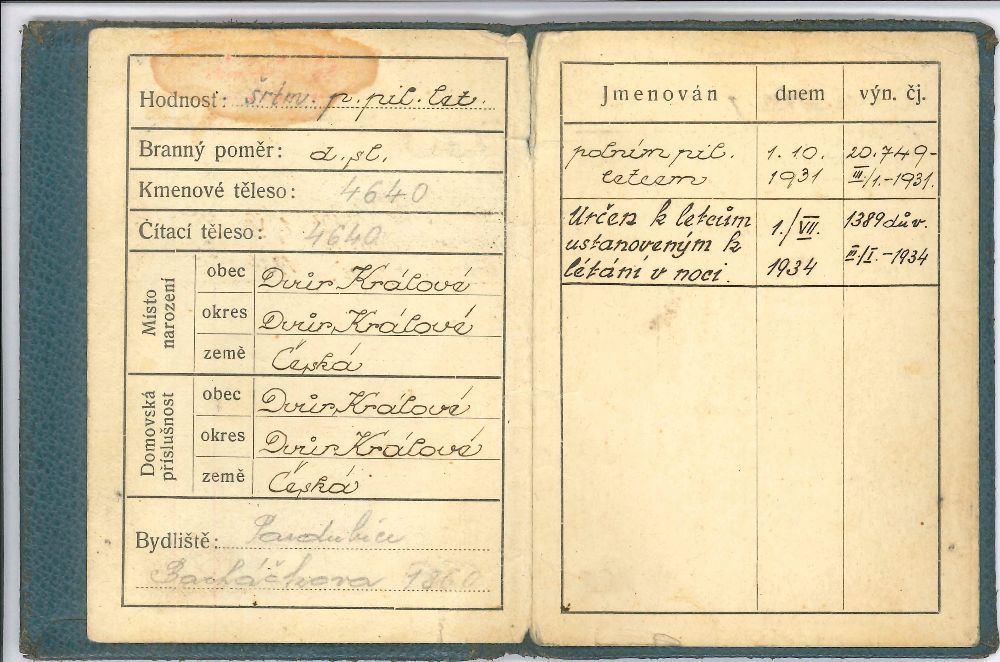 Hodnosť: šrtm. p. pil. let.
Branný poměr: d. sl.
Kmenové těleso: 4640
Čítací těleso: 4640
Místo narození
obec Dvůr Králové
okres Dvůr Králové
země Česká
Domovská příslušnost
obec Dvůr Králové
okres Dvůr Králové
země Česká
Bydliště: Pardubice
1860
Jmenován dnem výn. čj.
polním pil. 1. 10. 20.749-
letcem 1931 III/1.-1931.
Určen k letcům 1./VII. 1389 dův.
ustanoveným k
létání v noci. 1934 II/I.-1934